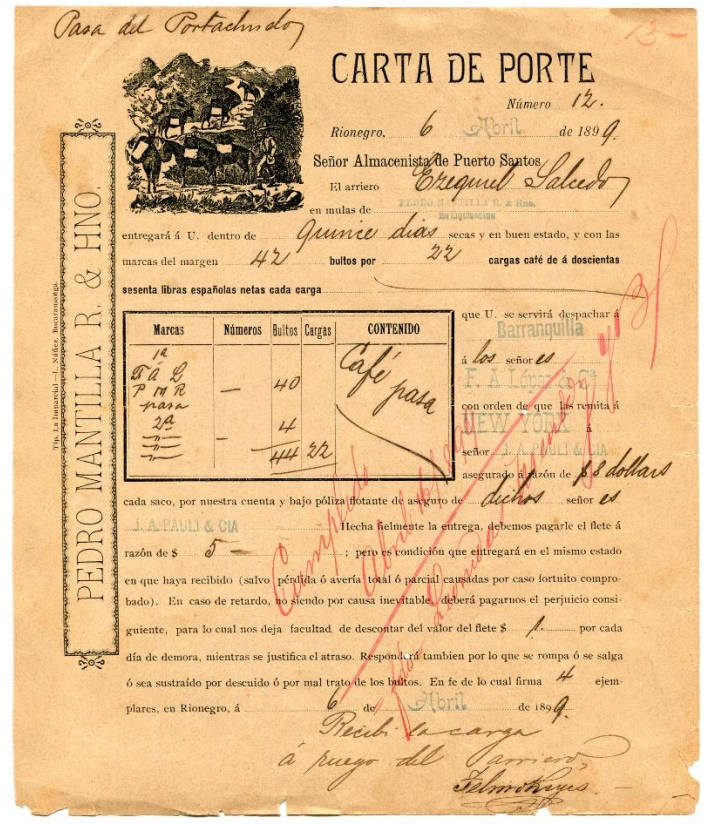 Pasa del Portachuelo
12 -
CARTA DE PORTE
Número 12.
Rionegro, 6 Abril de 1899.
Señor Almacenista de Puerto Santos
El arriero Ezequiel Salcedo
en mulas de PEDRO MANTILLA R. & Hno.
En Liquidación
entregará á U. dentro de Quince dias secas y en buen estado, y con las
marcas del margen 42 bultos por 22 cargas café de á doscientas
sesenta libras españolas netas cada carga
que U. se servirá despachar á
Barranquilla
á los señores
F. A. López & Ca.
con orden de que las remita á
NEW YORK á
señor J. A. PAULI & CIA
asegurado á razón de $ 8 dollars
Marcas Números Bultos Cargas CONTENIDO
1a
T A L — 40 Café pasa
P M R
pasa
2a 4
44 22
cada saco, por nuestra cuenta y bajo póliza flotante de aseguro de dichos señores
J. A. PAULI & CIA Hecha fielmente la entrega, debemos pagarle el flete á
razón de $ 5 - ; pero es condición que entregará en el mismo estado
en que haya recibido (salvo pérdida ó avería total ó parcial causadas por caso fortuito compro-
bado). En caso de retardo, no siendo por causa inevitable, deberá pagarnos el perjuicio consi-
guiente, para lo cual nos deja facultad de descontar del valor del flete $ 1. por cada
día de demora, mientras se justifica el atraso. Responderá tambien por lo que se rompa ó se salga
ó sea sustraído por descuido ó por mal trato de los bultos. En fe de lo cual firma 4 ejem-
plares, en Rionegro, á 6 de Abril de 1899.
Recibi la carga
á ruego del arriero
Cumplido
Abril
PEDRO MANTILLA R. & HNO.
Tip. La Inmarcial—J. Núñez, Bucaramanga.